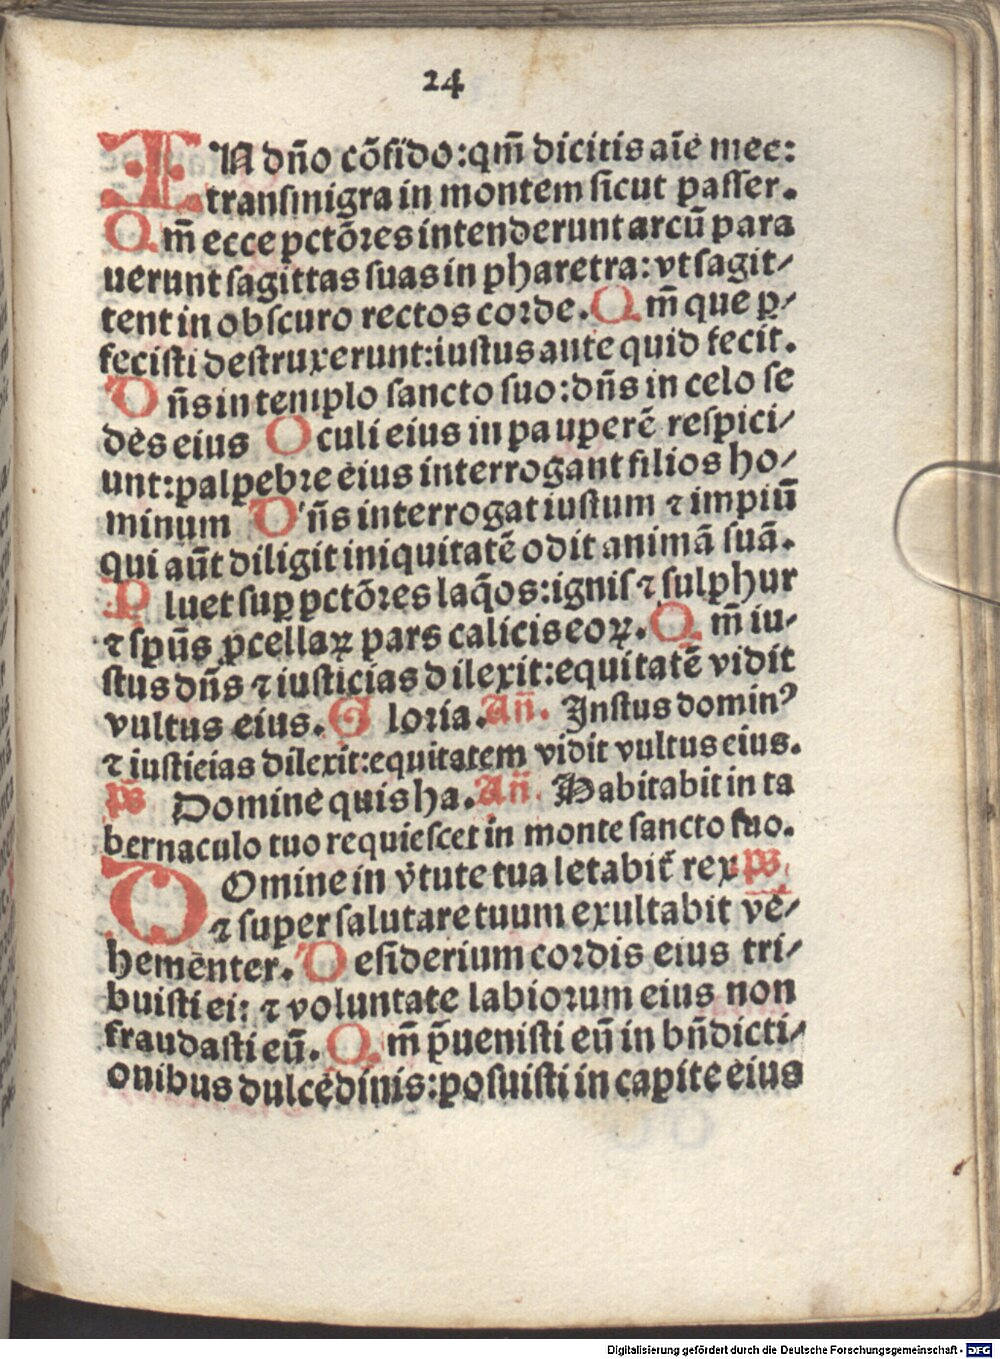 24
IN dño cõfido:qm̄ dicitis aīe mee:
transmigra in montem sicut passer.
Qm̄ ecce pctõres intenderunt arcū para
uerunt sagittas suas in pharetra: vt sagit⸗
tent in obscuro rectos corde. Qm̄ que ꝑ⸗
fecisti destruxerunt:iustus aute quid fecit.
Dñs in templo sancto suo:dñs in celo se
des eius Oculi eius in pauperē respici⸗
unt:palpebre eius interrogant filios ho⸗
minum Dñs interrogat iustum ⁊ impiū
qui aūt diligit iniquitatē odit animā suā.
Pluet suꝑ pctõres laq̄os:ignis ⁊ sulphur
⁊ spūs ꝓcellaꝝ pars calicis eoꝝ. Qm̄ iu⸗
stus dñs ⁊ iusticias dilexit:equitatē vidit
vultus eius. Gloria. Añ. Justus dominꝰ
⁊ iusticias dilexit:equitatem vidit vultus eius.
ps̄ Domine quis ha. Añ. Habitabit in ta
bernaculo tuo requiescet in monte sancto suo.
DOmine in v̄tute tua letabit̄ rex ps̄
⁊ super salutare tuum exultabit ve⸗
hementer. Desiderium cordis eius tri⸗
buisti ei: ⁊ voluntate labiorum eius non
fraudasti eū. Qm̄ p̄uenisti eū in bñdicti⸗
onibus dulcedinis:posuisti in capite eius
Digitalisierung gefördert durch die Deutsche Forschungsgemeinschaft - DFG